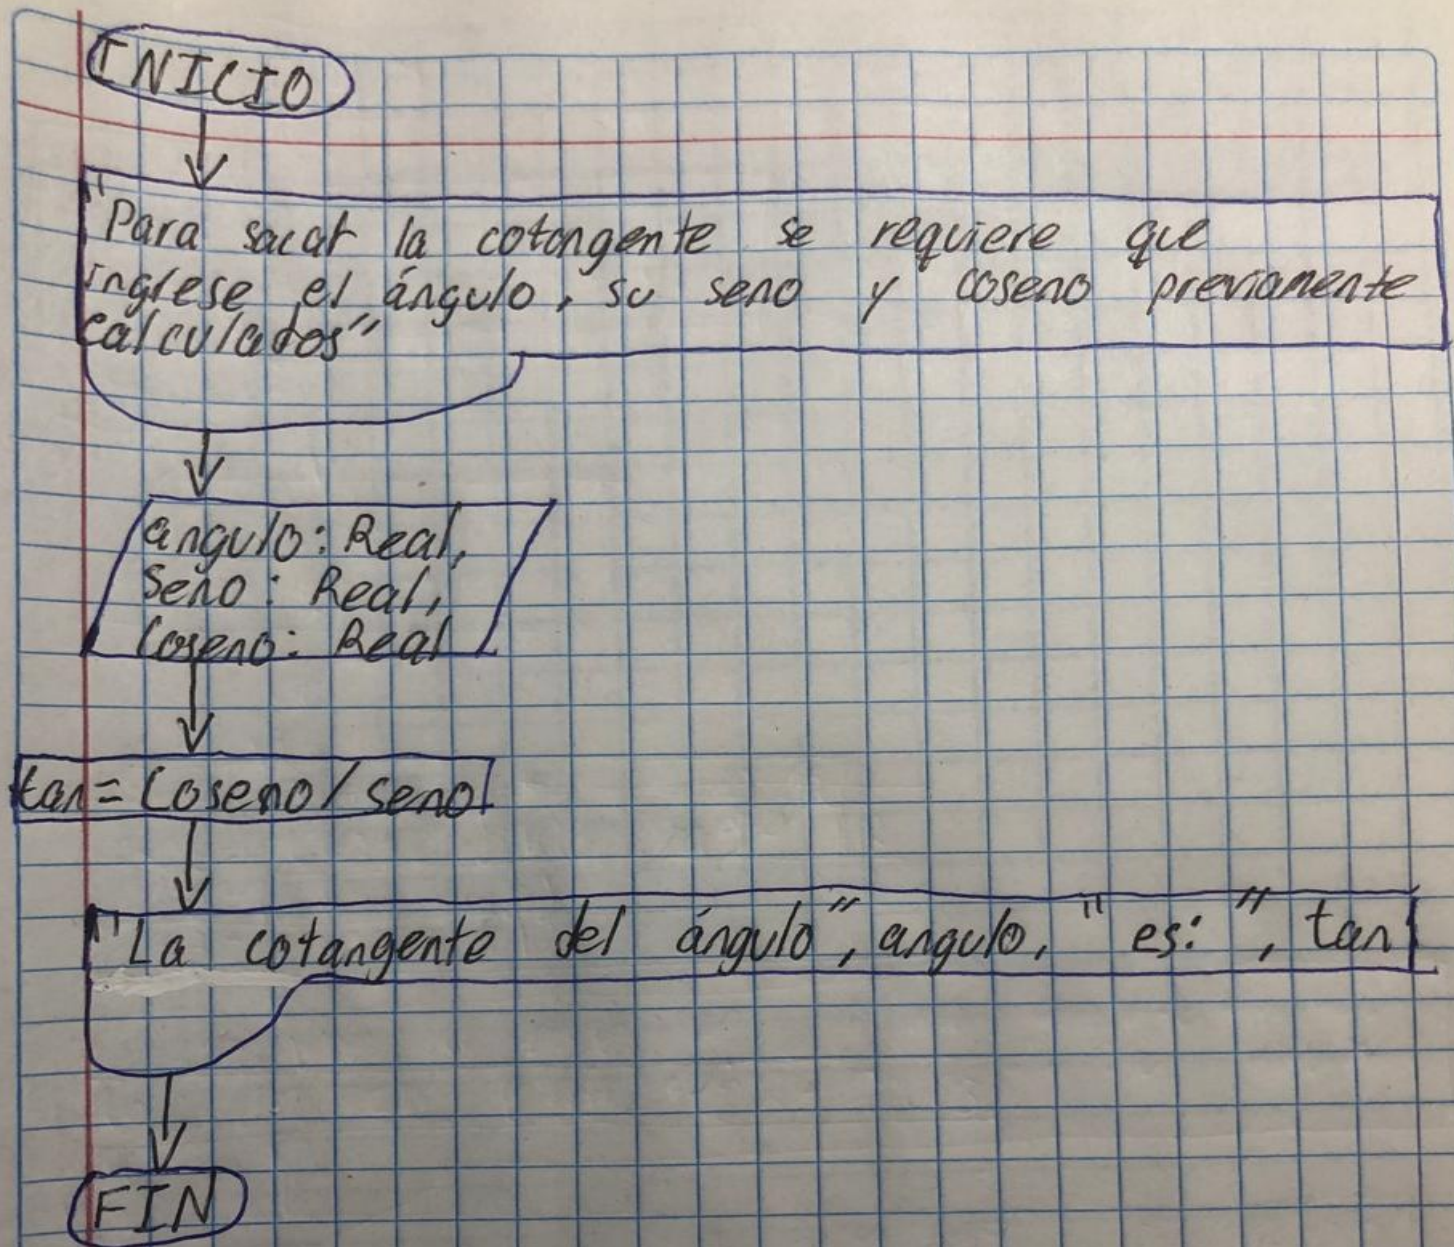 INICIO
"Para sacar la cotangente se requiere que
ingrese el ángulo, su seno y coseno previamente
calculados"
angulo: Real,
Seno: Real,
Coseno: Real
tan = Coseno / seno
"La cotangente del ángulo", angulo, "es: ", tan
FIN